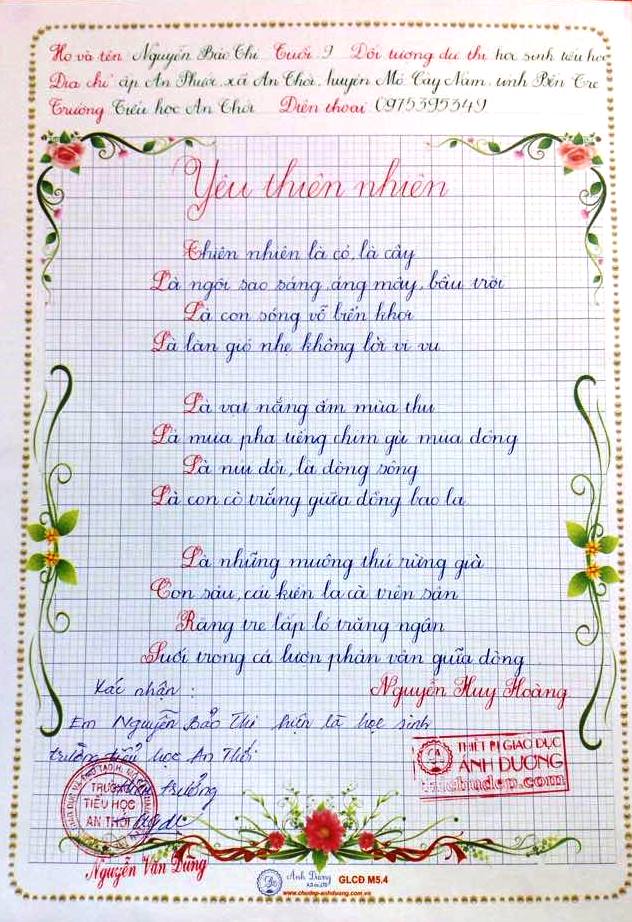 Họ và tên Nguyễn Bảo Thi Tuổi 9 Đối tượng dự thi học sinh tiểu học
Địa chỉ ấp An Phước, xã An Thới, huyện Mỏ Cày Nam, tỉnh Bến Tre
Trường Tiểu học An Thới Điện thoại 0975395349
Yêu thiên nhiên
Thiên nhiên là cỏ, là cây
Là ngôi sao sáng, áng mây, bầu trời
Là con sóng vỗ biển khơi
Là làn gió nhẹ không lời vi vu
Là vạt nắng ấm mùa thu
Là mưa pha tiếng chim gù mùa đông
Là núi đồi, là dòng sông
Là con cò trắng giữa đồng bao la
Là những muông thú rừng già
Con sâu, cái kiến la cà trên sân
Rặng tre lấp ló trăng ngân
Suối trong cá lượn phân vân giữa dòng
Nguyễn Huy Hoàng
Xác nhận :
Em Nguyễn Bảo Thi hiện là học sinh
trường tiểu học An Thới
Hiệu trưởng
TRƯỜNG
TIỂU HỌC
AN THỚI
Nguyễn Văn Dũng
THIẾT BỊ GIÁO DỤC
ÁNH DƯƠNG
Ánh Dương
GLCĐ M5.4
www.chudep-anhduong.com.vn